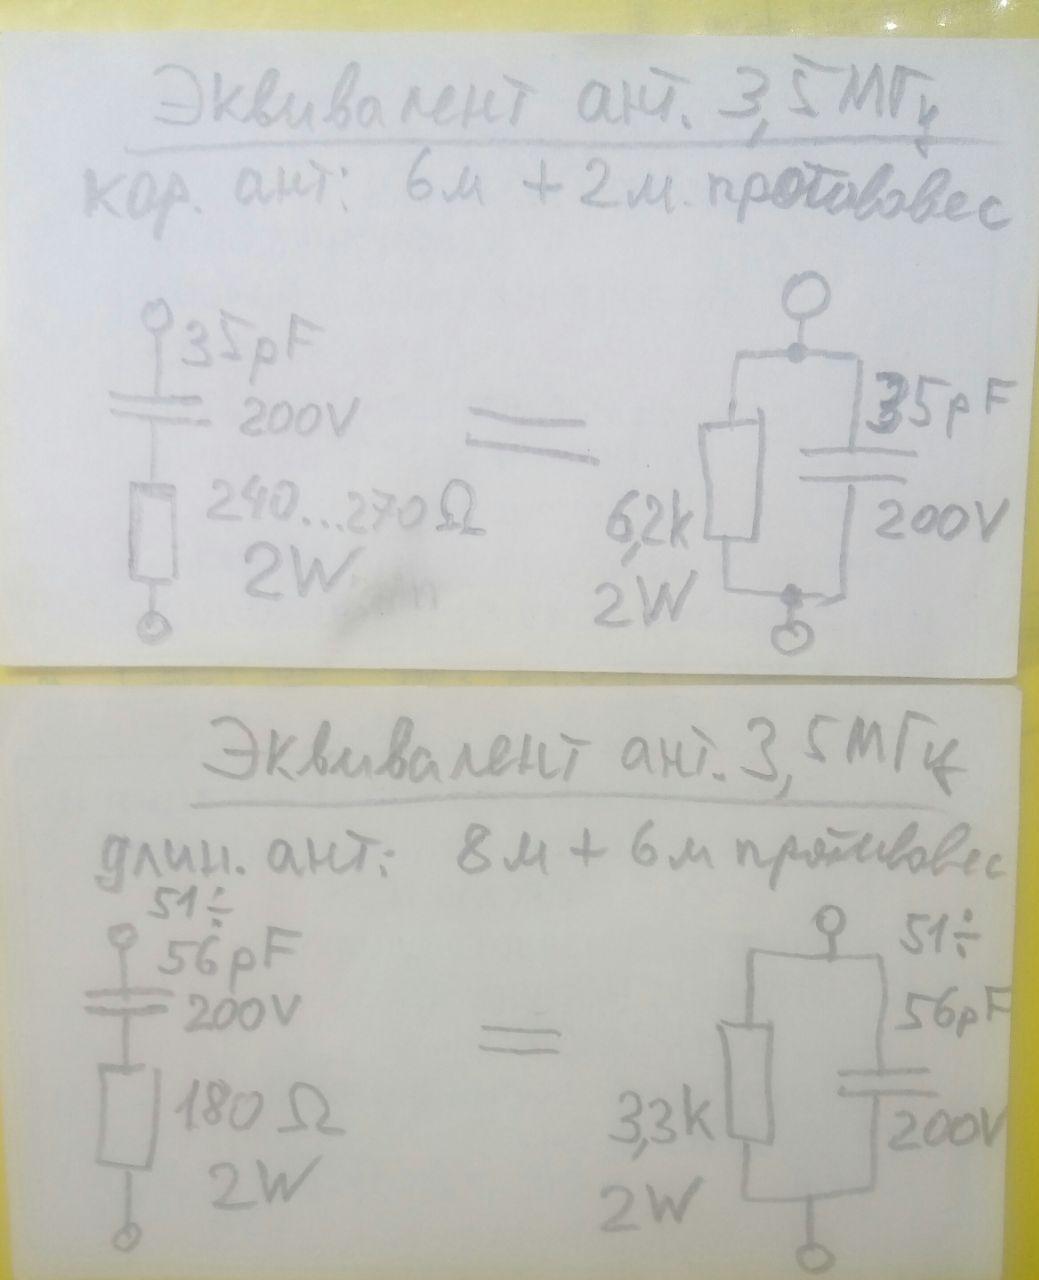 Эквивалент ант. 3,5МГц
кор. ант: 6м + 2м. противовес
35pF
200V
240...270Ω
2W
=
35pF
200V
6,2k
2W
Эквивалент ант. 3,5МГц
длин. ант: 8м + 6м противовес
51÷
56pF
200V
180Ω
2W
=
51÷
56pF
200V
3,3k
2W